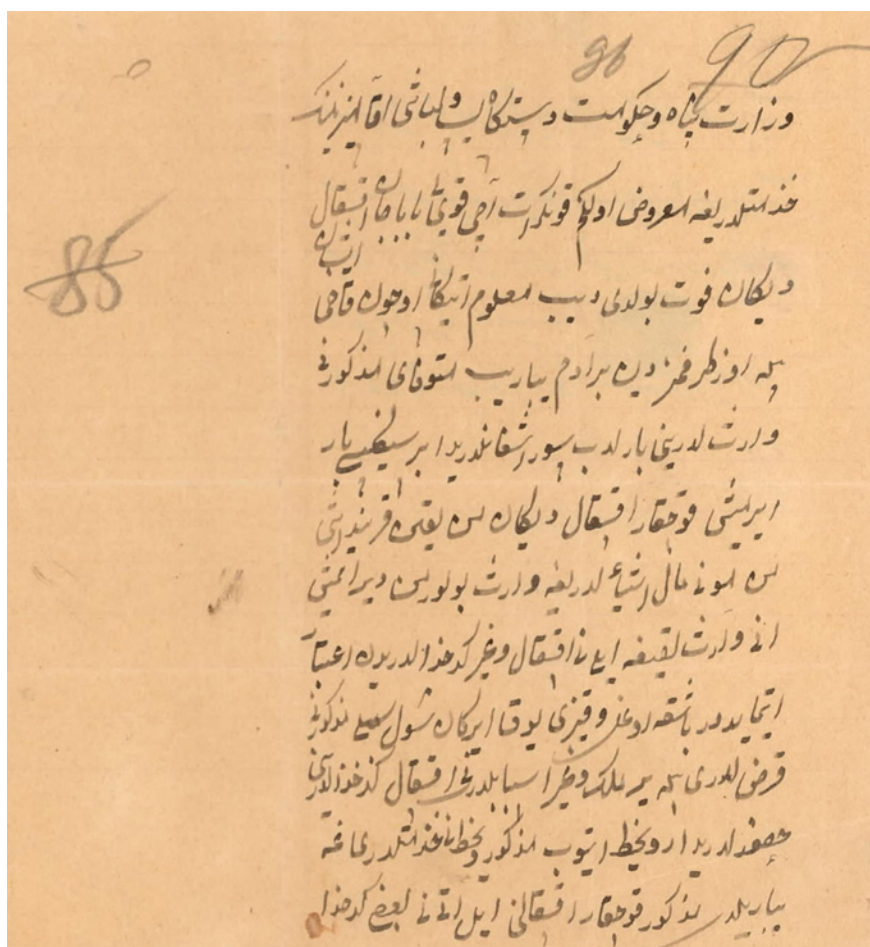 96 90
وزارت پناه وحکومت دستکاه یساولباشی اقامیزنینک
خذمتلدریغه معروض اولکم قونکرات اچی قویلی باباجان اقسقال
85
دیکان فوت بولدی دیب معلوم اتیکانی اوچون قاضی
یله اوز طرفمزدین بر آدم یباریب متوفای مذکورنی
وارث لدرینی بارلدب سوراشقانلدریدا بر سینکلیسی بار
ایرمیش قوچقار اقسقال دیکان من یقین قرینداشی
من مونی مال اشیاء لدریغه وارث بولورمن دیر ایمیش
انی وارث لیقیغه ایلاتی اقسقال وغیر کدخدالدریدین اعتبار
ایتمایدور باشقه اوغلی وقیزی یوقدا ایرکان شول مذکورنی
قرض لدری یله یر ملک وغیر اسبابلدرینی اقسقال کدخدالدرنی
لدریدا رویخط ایتوب مذکور رویخطنی خذمتلدریماغه
یباریلدی مذکور قوچقار اقسقالنی ایل اتی نی بعضی کدخدا